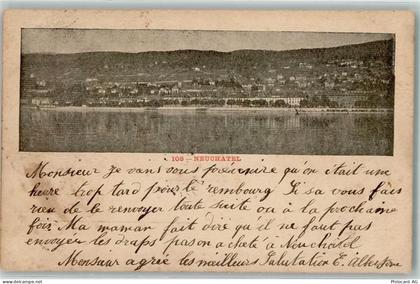 108 - NEUCHATEL
Monsieur Je vans vous prévenire qu'on était une
heure trop tard pour le rembourg Si sa vous fais
rien de le renvoyer toute suite ou a la prochaine
fois Ma maman fait dire qu il ne faut pas
envoyer les draps pas on a cheté à Neuchatel
Monsieur agrée les meilleurs Salutation E.
PICARIO.AG